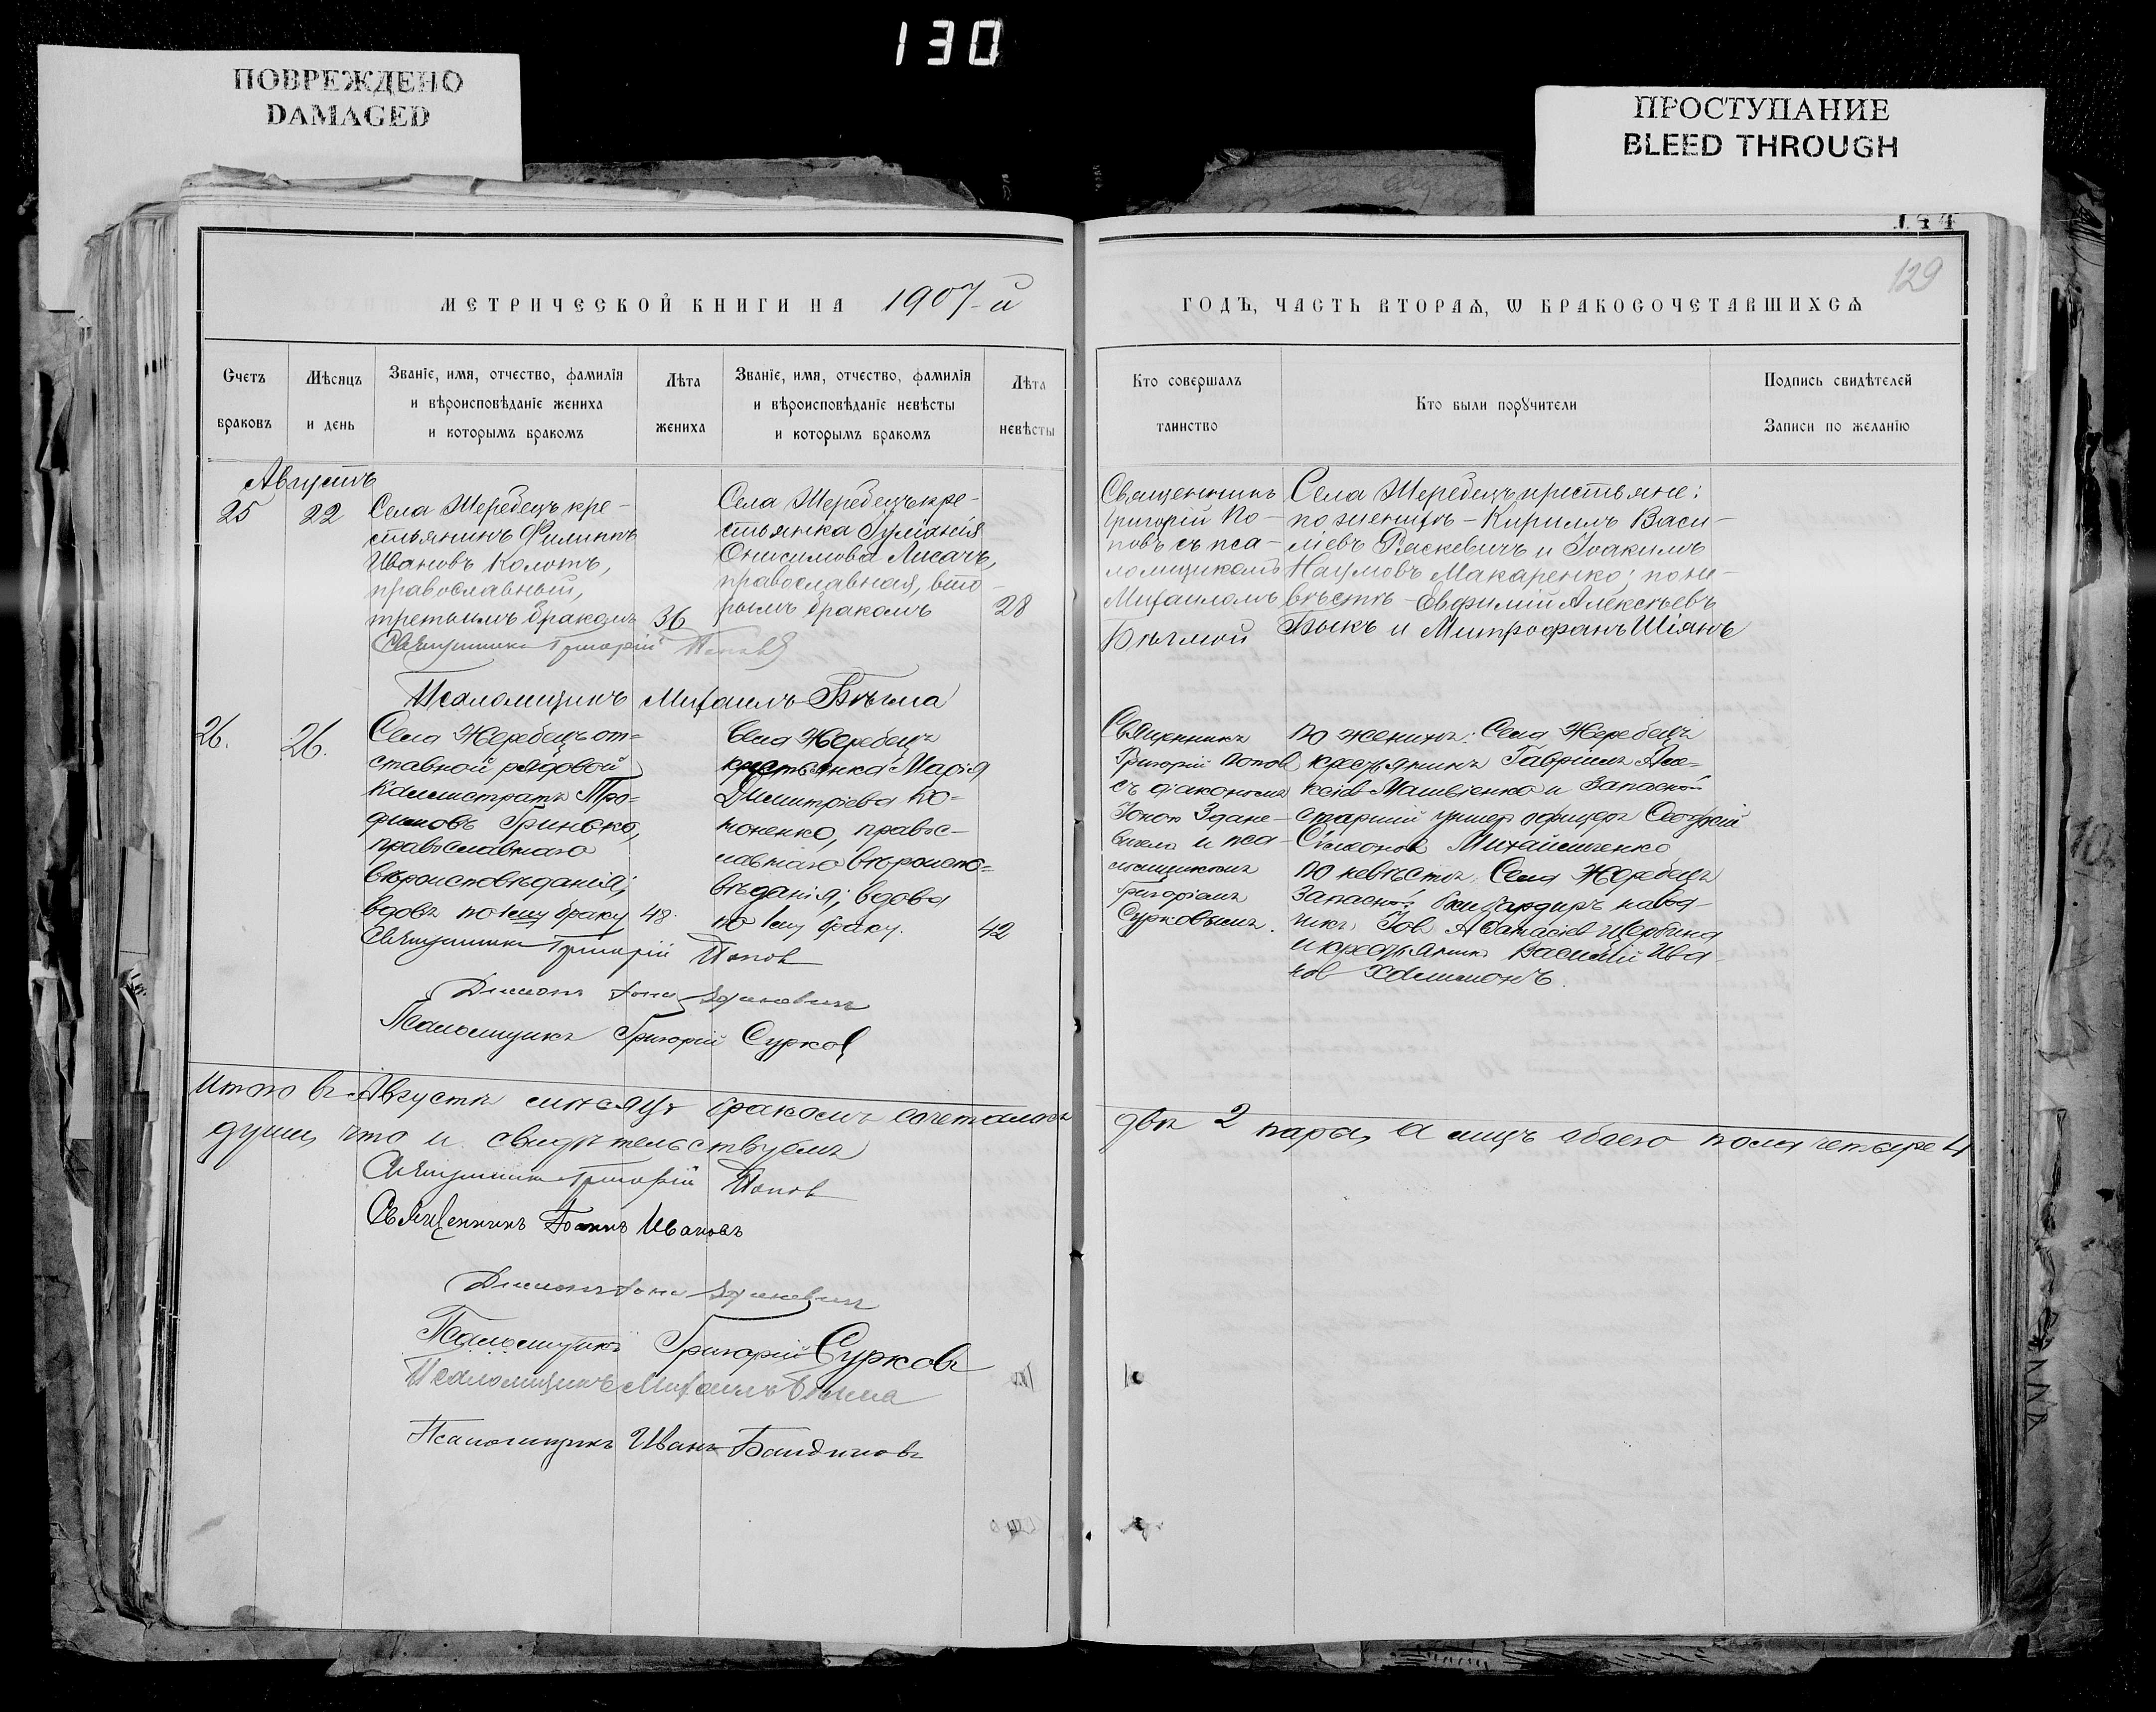 130
ПОВРЕЖДЕНО
DAMAGED
ПРОСТУПАНИЕ
BLEED THROUGH
144
129
МЕТРИЧЕСКОЙ КНИГИ НА 1907-й
ГОДЪ, ЧАСТЬ ВТОРАЯ, Ѡ БРАКОСОЧЕТАВШИХСЯ
Счетъ
браковъ
Мѣсяцъ
и день
Званіе, имя, отчество, фамилія
и вѣроисповѣданіе жениха
и которымъ бракомъ
Лѣта
жениха
Званіе, имя, отчество, фамилія
и вѣроисповѣданіе невѣсты
и которымъ бракомъ
Лѣта
невѣсты
Кто совершалъ
таинство
Кто были поручители
Подпись свидѣтелей
Записи по желанію
Августъ
25
22
Села Жеребецъ кре-
стьянинъ Филиппъ
Ивановъ Колотъ,
православный,
третьимъ бракомъ
36
Села Жеребецъ кре-
стьянка Гулианія
Онисимова Лисачъ,
православная, вто-
рымъ бракомъ
28
Священникъ
Григорій По-
повъ съ пса-
ломщикомъ
Михаиломъ
Бѣлмой
Села Жеребецъ крестьяне:
по женихѣ - Кириллъ Васи-
ліевъ Раскевичъ и Іоакимъ
Наумовъ Макаренко; по не-
вѣстѣ - Евфимій Алексѣевъ
Быкъ и Митрофанъ Шіянъ
Священникъ Григорій Поповъ
Псаломщикъ Михаилъ Бѣлма
26.
26.
Села Жеребецъ от-
ставной рядовой
Каллистратъ Тро-
фимовъ Гринько,
православнаго
вѣроисповѣданія;
вдовъ по 1му браку
48.
Села Жеребецъ
крестьянка Марія
Димитріева Ко-
ноненко, правос-
лавнаго вѣроиспо-
вѣданія; вдова
по 1му браку.
42
Священникъ
Григорій Попов
съ діакономъ
Іоною Здане-
вичем и пса-
ломщикомъ
Григоріемъ
Сурковымъ.
По женихѣ: Села Жеребецъ
крестьянинъ Гавріилъ Але-
ксіев Матвіенко и Запасной
старшій унтер офицеръ Георгій
Симеонов Михайличенко
По невѣстѣ: Села Жеребецъ
Запасной бомбардиръ навод-
чикъ Іов Аѳанасіев Щербина
и крестьянинъ Василій Ива-
нов Халимонъ.
Священникъ Григорій Попов
Діаконъ Іона Зданевичъ
Псаломщикъ Григорій Сурков
Итого въ Августѣ мѣсяцѣ бракомъ сочеталось
двѣ 2 пары, а лицъ обоего пола четыре 4
души, что и свидѣтельствуемъ
Священникъ Григорій Попов
Священникъ Іоаннъ Ивановъ
Діаконъ Іона Зданевичъ
Псаломщикъ Григорій Сурковъ
Псаломщикъ Михаилъ Бѣлма
Псаломщикъ Иванъ Бандиновъ